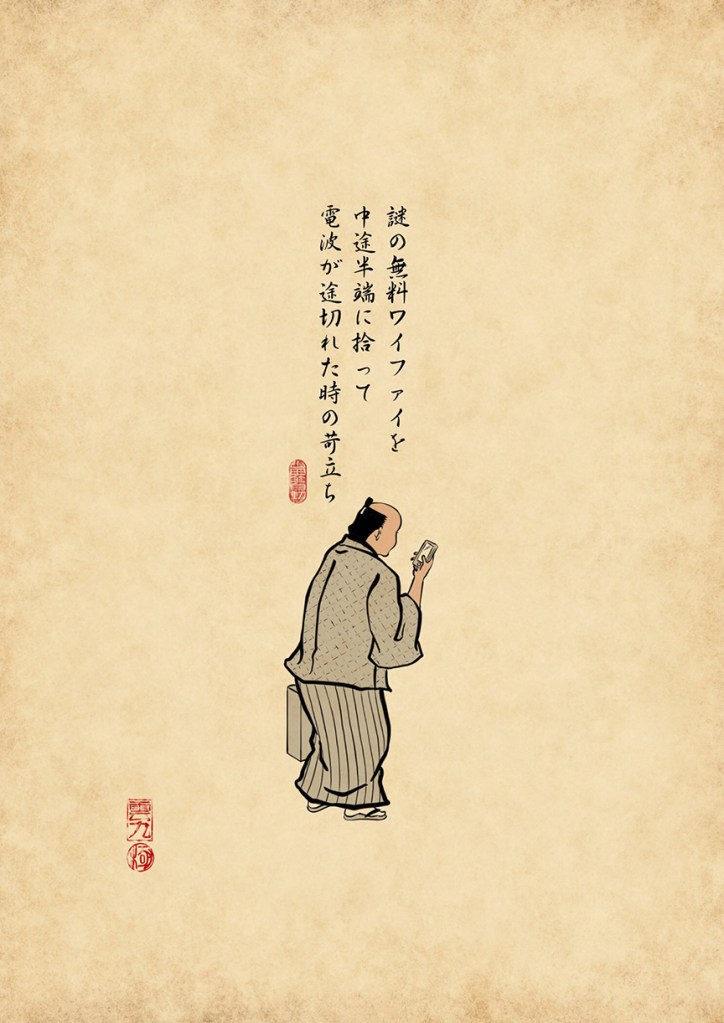 謎の無料ワイファイを
中途半端に拾って
電波が途切れた時の苛立ち